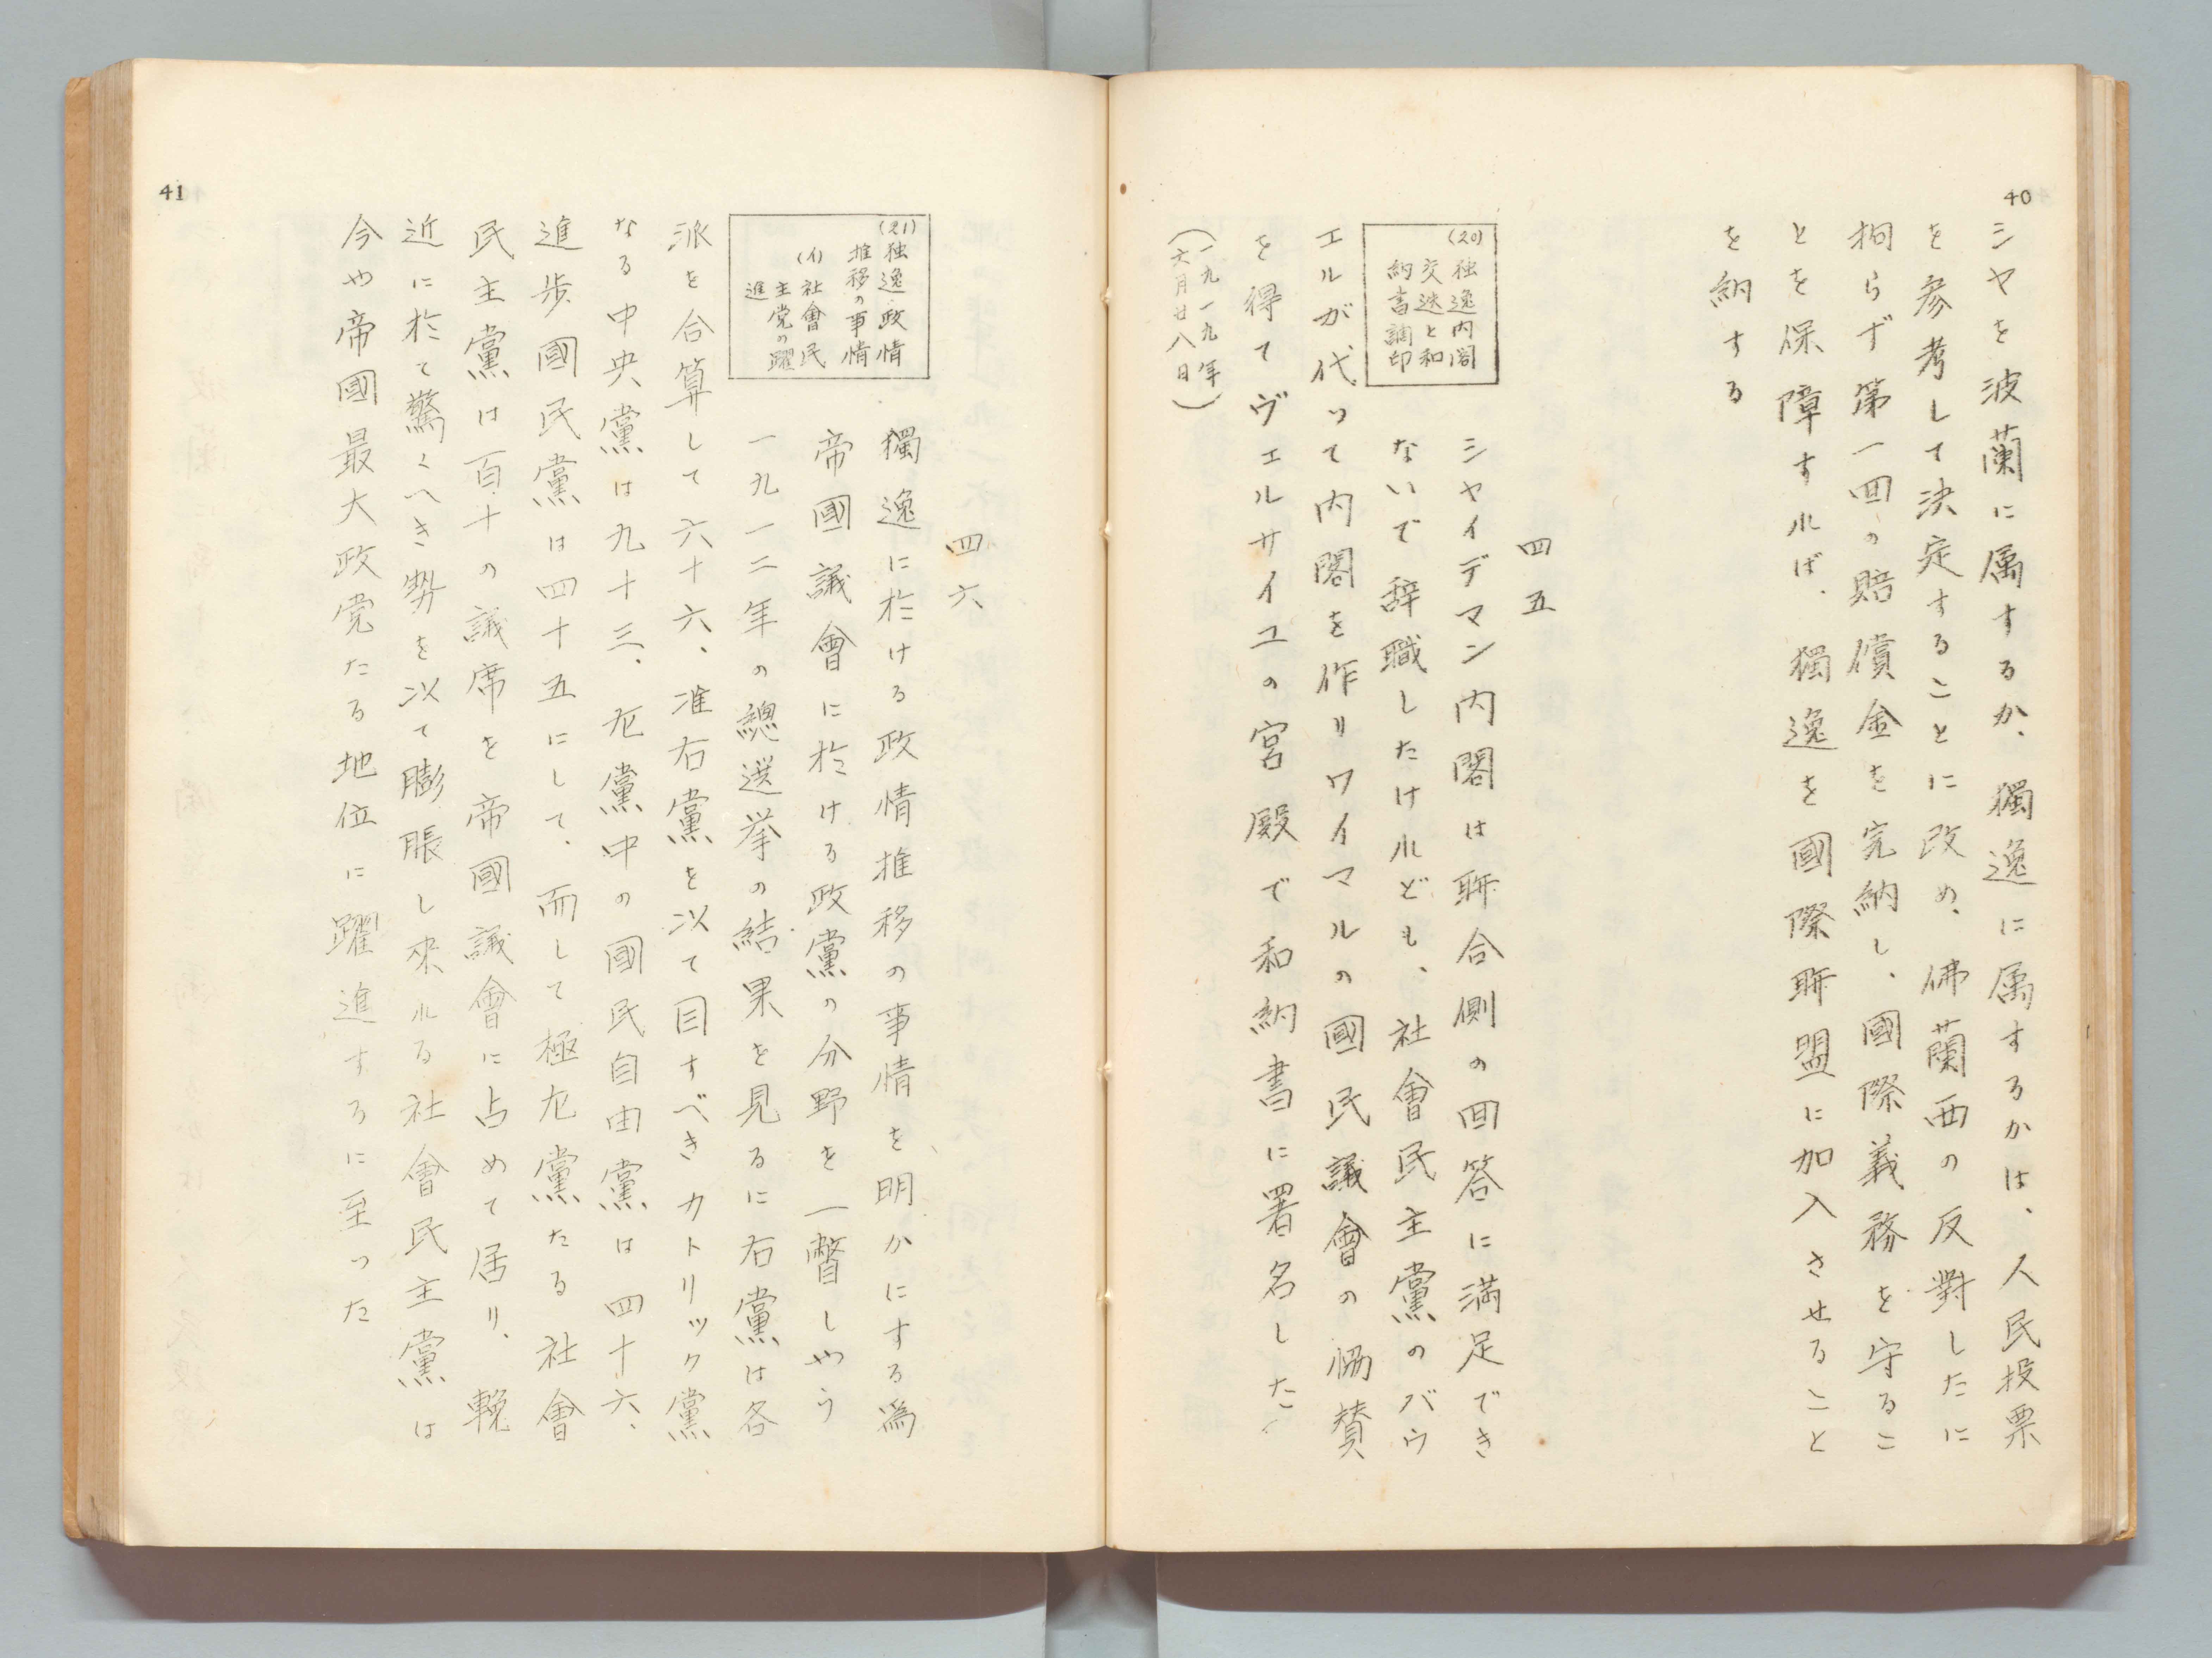 40
シヤを波蘭に属するか、獨逸に属するかは、人民投票
を参考して決定することに改め、佛蘭西の反對したに
拘らず第一回の賠償金を完納し、國際義務を守るこ
とを保障すれば、獨逸を國際聯盟に加入させること
を納する
四五
(20)独逸内閣
交迭と和
約書調印
シヤイデマン内閣は聯合側の回答に満足でき
ないで辞職したけれども、社會民主黨のバウ
エルが代って内閣を作りワイマルの國民議會の協賛
を得てヴェルサイユの宮殿で和約書に署名した
(一九一九年
六月廿八日)
四六
(21)独逸政情
推移の事情
(イ)社會民
主党の躍
進
獨逸に於ける政情推移の事情を明かにする為
帝國議會に於ける政黨の分野を一瞥しやう
一九一二年の總選挙の結果を見るに右黨は各
派を合算して六十六、准右黨を以て目すべきカトリック黨
なる中央黨は九十三、左黨中の國民自由黨は四十六、
進歩國民黨は四十五にして、而して極左黨たる社會
民主黨は百十の議席を帝國議會に占めて居り、輓
近に於て驚くべき勢を以て膨脹し來れる社會民主黨は
今や帝國最大政党たる地位に躍進するに至った
41